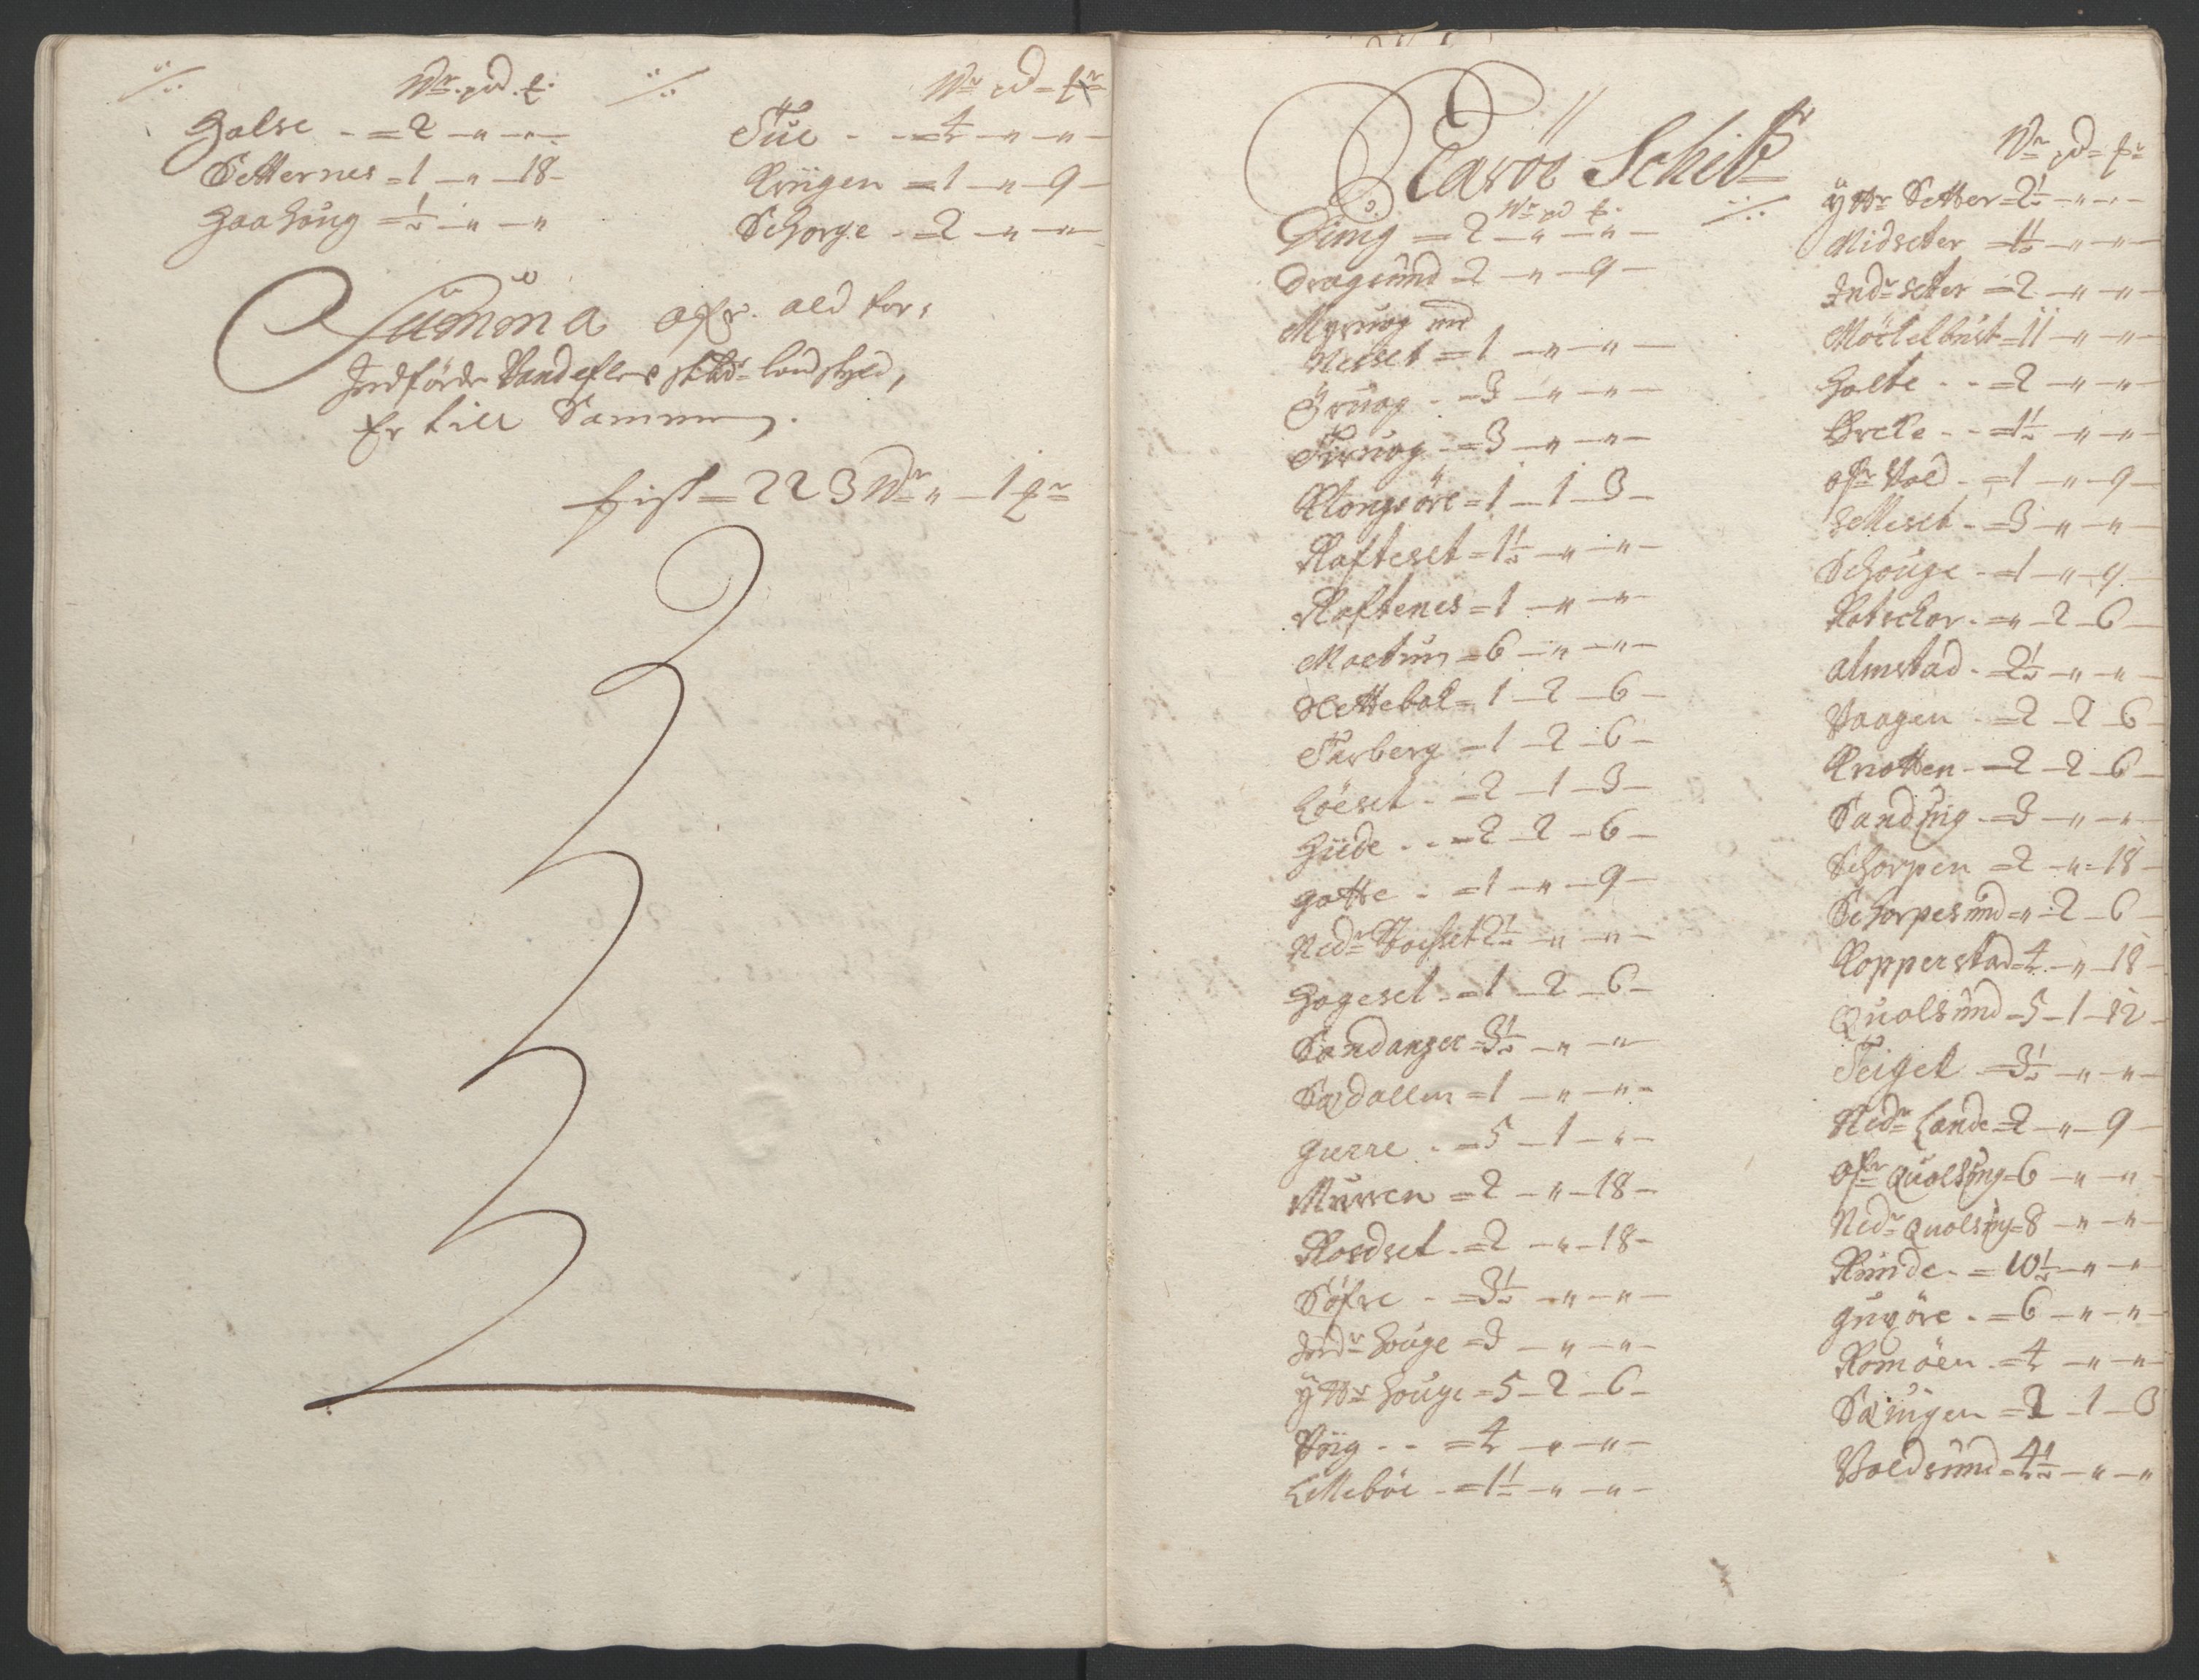 W pd £
Halse - = 2 — " — " —
Setternes = 1 — " — 18 —
Haahoug = ½ — " — "
W pd £
Tue - - = 4 — " — " —
Ringen = 1 — " — 9 —
Schorge - = 2 — " — " —
Summa af ald for:
Indførde Vandefløes landschyld,
Er till Sammen.
fisk = 223 W " — 1 £
Harøe Schib
W pd £
Dimig = 2 — " — " —
Dragsund = 2 — " — 9 —
Myruog und
Neeset = 1 — " — " —
Øruog - = 3 — " — " —
Turuog - = 3 — " — " —
Klongsøre = 1 — 1 — 3 —
Rafteset = 1½ — " — " —
Raftenes = 1 — " — " —
Moltum = 6 — " — " —
Nettebak = 1 — 2 — 6 —
Tarberg = 1 — 2 — 6 —
Løeset - = 2 — 1 — 3 —
Hiide - - = 2 — 2 — 6 —
gotte - = 1 — " — 9 —
Ned Voldset 2½ — " — " —
Hogeset - = 1 — 2 — 6 —
Sandanger = 3½ — " — " —
Sædallen = 1 — " — " —
gurre - = 5 — 1 — " —
Mурren = 2 — " — 18 —
Rosdset - = 2 — " — 18 —
Søfre - = 3½ — " — " —
Ind houge = 3 — " — " —
ÿttr houge = 5 — 2 — 6 —
Viig - - = 4 — " — " —
Lillebøe - = 1½ — " — " —
W pd £
ÿttr Setter = 2½ — " — " —
Midseter = 1½ — " — " —
Ind seter = 2 — " — " —
Møckelbust = 11 — " — " —
Holte - - = 2 — " — " —
Brecke - - = 1½ — " — " —
of Vold - = 1 — " — 9 —
Jelleset - = 3 — " — " —
Schouge - = 1 — " — 9 —
Kotschor - = " — 2 — 6 —
Almstad - = 2½ — " — " —
Vaagen - = 2 — 2 — 6 —
Knotten - = 2 — 2 — 6 —
Sandvig - = 3 — " — " —
Schorpen = 2 — " — 18 —
Schorpesund = " — 2 — 6 —
Kopperstad = 4 — " — 18 —
Qualsund = 5 — 1 — 12 —
Teiget - = 3½ — " — " —
Ned Lande = 2 — " — 9 —
of Qualsvig = 6 — " — " —
Ned Qualsvig = 8 — " — " —
Runde - = 10½ — " — " —
gursøre - = 6 — " — " —
Romøen - = 4 — " — " —
Sæuigen = 2 — 1 — 3
Voldsund = 4½ — " — "